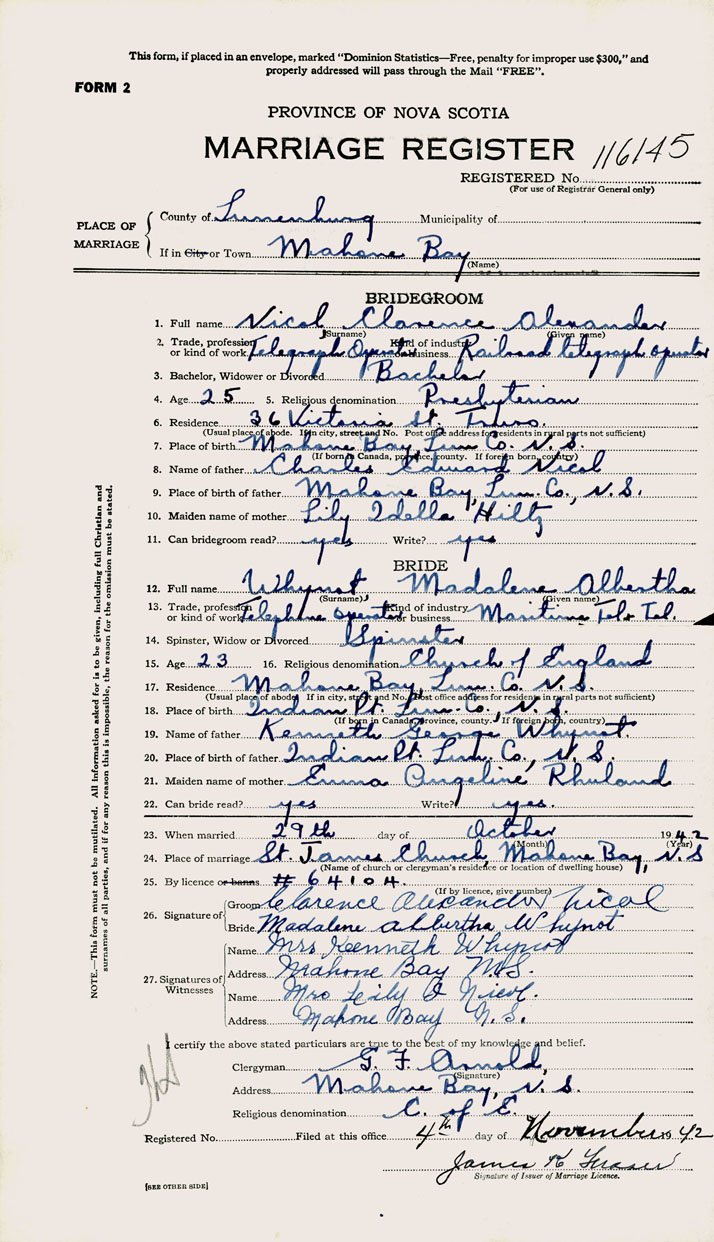 This form, if placed in an envelope, marked "Dominion Statistics—Free, penalty for improper use $300," and
properly addressed will pass through the Mail "FREE".
FORM 2
PROVINCE OF NOVA SCOTIA
MARRIAGE REGISTER 116145
REGISTERED No.
(For use of Registrar General only)
PLACE OF MARRIAGE
County of Lunenburg Municipality of
If in City or Town Mahone Bay
(Name)
BRIDEGROOM
1. Full name Nicol Clarence Alexander
(Surname) (Given name)
2. Trade, profession or kind of work Telegraph Operator Kind of industry or business Railroad telegraph operator
3. Bachelor, Widower or Divorced Bachelor
4. Age 25 5. Religious denomination Presbyterian
6. Residence 36 Victoria St. Truro.
(Usual place of abode. If in city, street and No. Post office address for residents in rural parts not sufficient)
7. Place of birth Mahone Bay, Lun. Co. N.S.
(If born in Canada, province, county. If foreign born, country)
8. Name of father Charles Edward Nicol
9. Place of birth of father Mahone Bay, Lun. Co., N.S.
10. Maiden name of mother Lily Idella Hiltz
11. Can bridegroom read? yes Write? yes
BRIDE
12. Full name Whynot Madalene Albertha
(Surname) (Given name)
13. Trade, profession or kind of work Telephone operator Kind of industry or business Maritime Tel & Tel.
14. Spinster, Widow or Divorced Spinster
15. Age 23 16. Religious denomination Church of England
17. Residence Mahone Bay, Lun. Co. N.S.
(Usual place of abode. If in city, street and No. Post office address for residents in rural parts not sufficient)
18. Place of birth Indian Pt. Lun. Co., N.S.
(If born in Canada, province, county. If foreign born, country)
19. Name of father Kenneth George Whynot
20. Place of birth of father Indian Pt. Lun. Co., N.S.
21. Maiden name of mother Emma Angeline Rhuland
22. Can bride read? yes Write? yes.
23. When married 29th day of October 1942
(Month) (Year)
24. Place of marriage St. James Church, Mahone Bay, N.S
(Name of church or clergyman's residence or location of dwelling house)
25. By licence or banns # 64104.
(If by licence, give number)
26. Signature of
Groom Clarence Alexander Nicol
Bride Madalene Albertha Whynot
27. Signatures of Witnesses
Name Mrs Kenneth Whynot
Address Mahone Bay N.S.
Name Mrs Leily I Nicol.
Address Mahone Bay N.S.
I certify the above stated particulars are true to the best of my knowledge and belief.
Clergyman G. F. Arnold,
(Signature)
Address Mahone Bay, N.S.
Religious denomination C. of E.
Registered No. Filed at this office 4th day of November 1942
James K Fraser
Signature of Issuer of Marriage Licence.
[SEE OTHER SIDE]
NOTE.—This form must not be mutilated. All information asked for is to be given, including full Christian and
surnames of all parties, and if for any reason this is impossible, the reason for the omission must be stated.